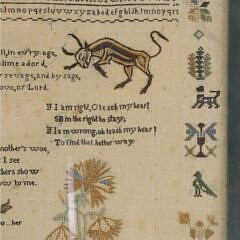 uvwxyzabcdefghiklmnopqrs
ll, in ev'ry age,
lime ador'd,
savage, and by sage,
ove, or Lord.
If I am right, O teach my heart
Still in the right to stay;
If I am wrong, oh teach my heart
To find that better way.
nother's woe,
I see
thers show
ow to me.